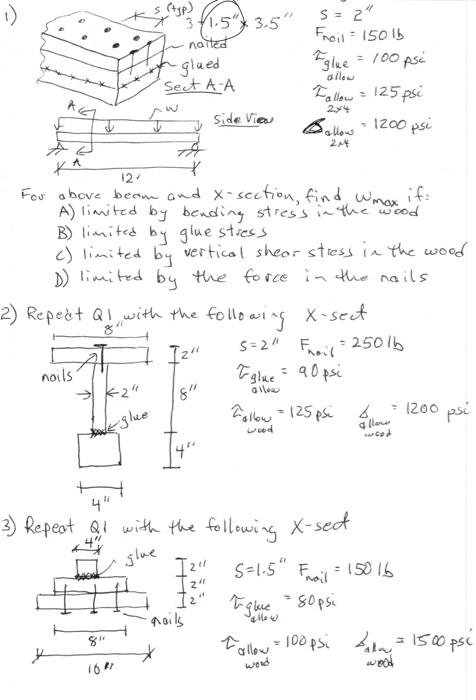 1)
s (typ)
3 - 1.5" x 3.5"
nailed
glued
Sect A-A
A
w
Side View
A
12'
S = 2"
Fnail = 150 lb
τglue allow = 100 psi
τallow 2x4 = 125 psi
σallow 2x4 = 1200 psi
For above beam and x-section, find wmax if:
A) limited by bending stress in the wood
B) limited by glue stress
C) limited by vertical shear stress in the wood
D) limited by the force in the nails
2) Repeat Q1 with the following X-sect
8"
nails
2"
2"
8"
glue
4"
4"
S=2" Fnail = 250 lb
τglue allow = 90 psi
τallow wood = 125 psi σallow wood = 1200 psi
3) Repeat Q1 with the following X-sect
4"
glue
2"
2"
2"
nails
8"
S=1.5" Fnail = 150 lb
τglue allow = 80 psi
τallow wood = 100 psi σallow wood = 1500 psi